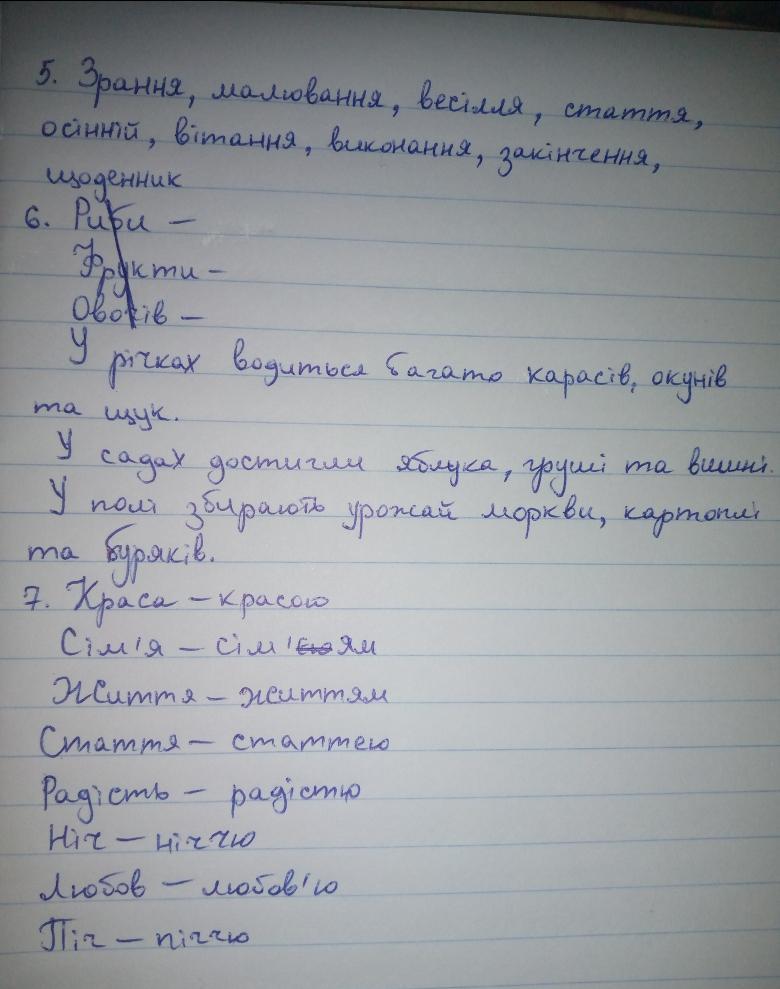 5. Зрання, малювання, весілля, стаття,
осінній, вітання, виконання, закінчення,
щоденник
6. Риби –
Фрукти –
Овочів –
У річках водиться багато карасів, окунів
та щук.
У садах достигли яблука, груші та вишні.
У полі збирають урожай моркви, картоплі
та буряків.
7. Краса – красою
Сім'я – сім'ям
Життя – життям
Стаття – статтею
Радість – радістю
Ніч – ніччю
Любов – любов'ю
Піч – піччю